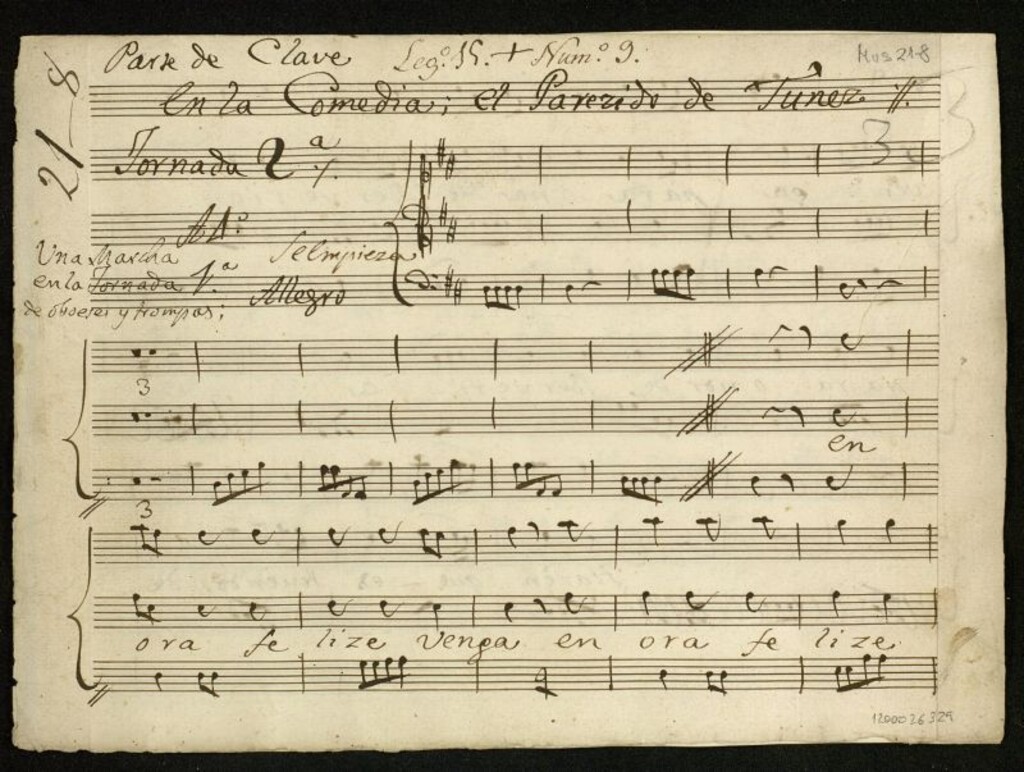 Parte de Clave Leg.º 15. + Num.º 9.
Mus 21-8
21-8
En la Comedia; el Parezido de Tunez //.
3
Jornada 2.ª
All.º
Una Marcha
en la Jornada 1.ª
de oboeses y trompas;
Se Empieza
Allegro
3
en
3
ora fe lize Venga en ora fe lize.
1200026329